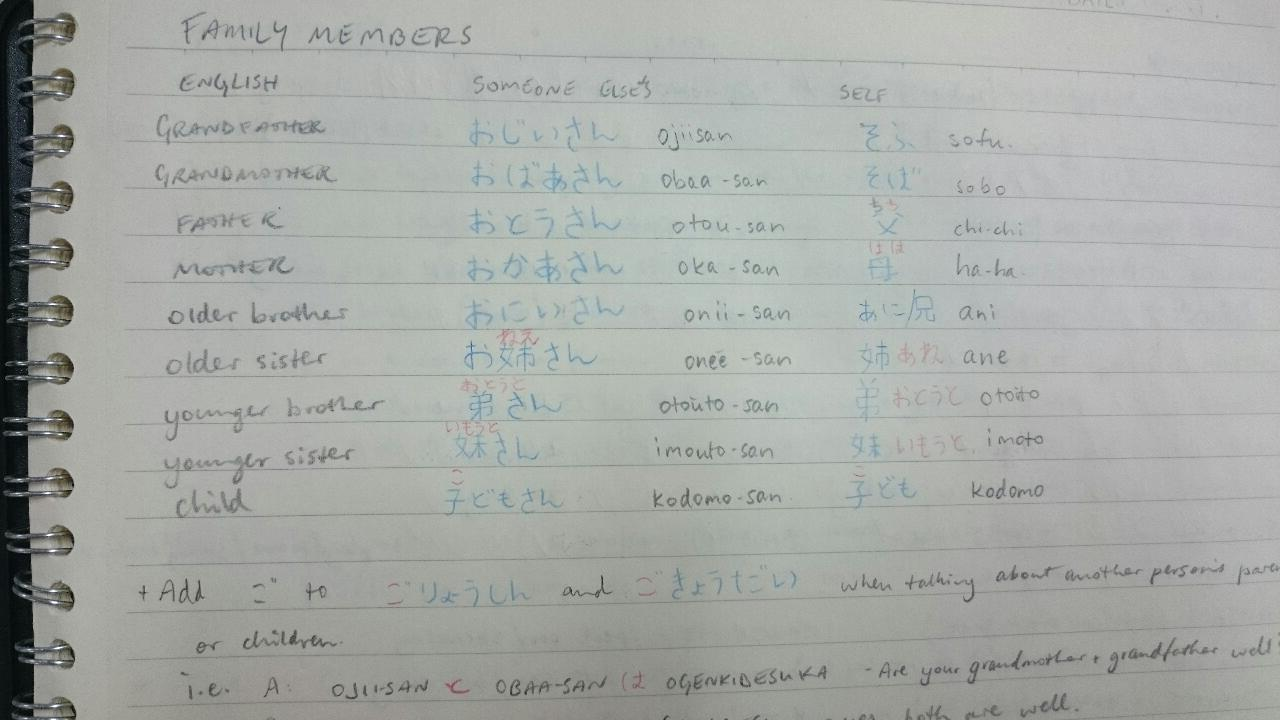 FAMILY MEMBERS
ENGLISH SOMEONE ELSE'S SELF
GRANDFATHER おじいさん ojiisan そふ sofu.
GRANDMOTHER おばあさん obaa-san そば sobo
FATHER おとうさん otou-san 父 ちち chi-chi
MOTHER おかあさん oka-san 母 はは ha-ha.
older brother おにいさん onii-san あに/兄 ani
older sister お姉さん ねえ onee-san 姉 あね ane
younger brother 弟さん おとうと otouto-san 弟 おとうと otōto
younger sister 妹さん いもうと imouto-san 妹 いもうと imoto
child 子どもさん こ kodomo-san. 子ども こ kodomo
+ Add ご to ごりょうしん and ごきょうだい when talking about another person's
or children.
i.e. A: OJII-SAN と OBAA-SAN は OGENKIDESUKA - Are your grandmother + grandfather well
both are well.